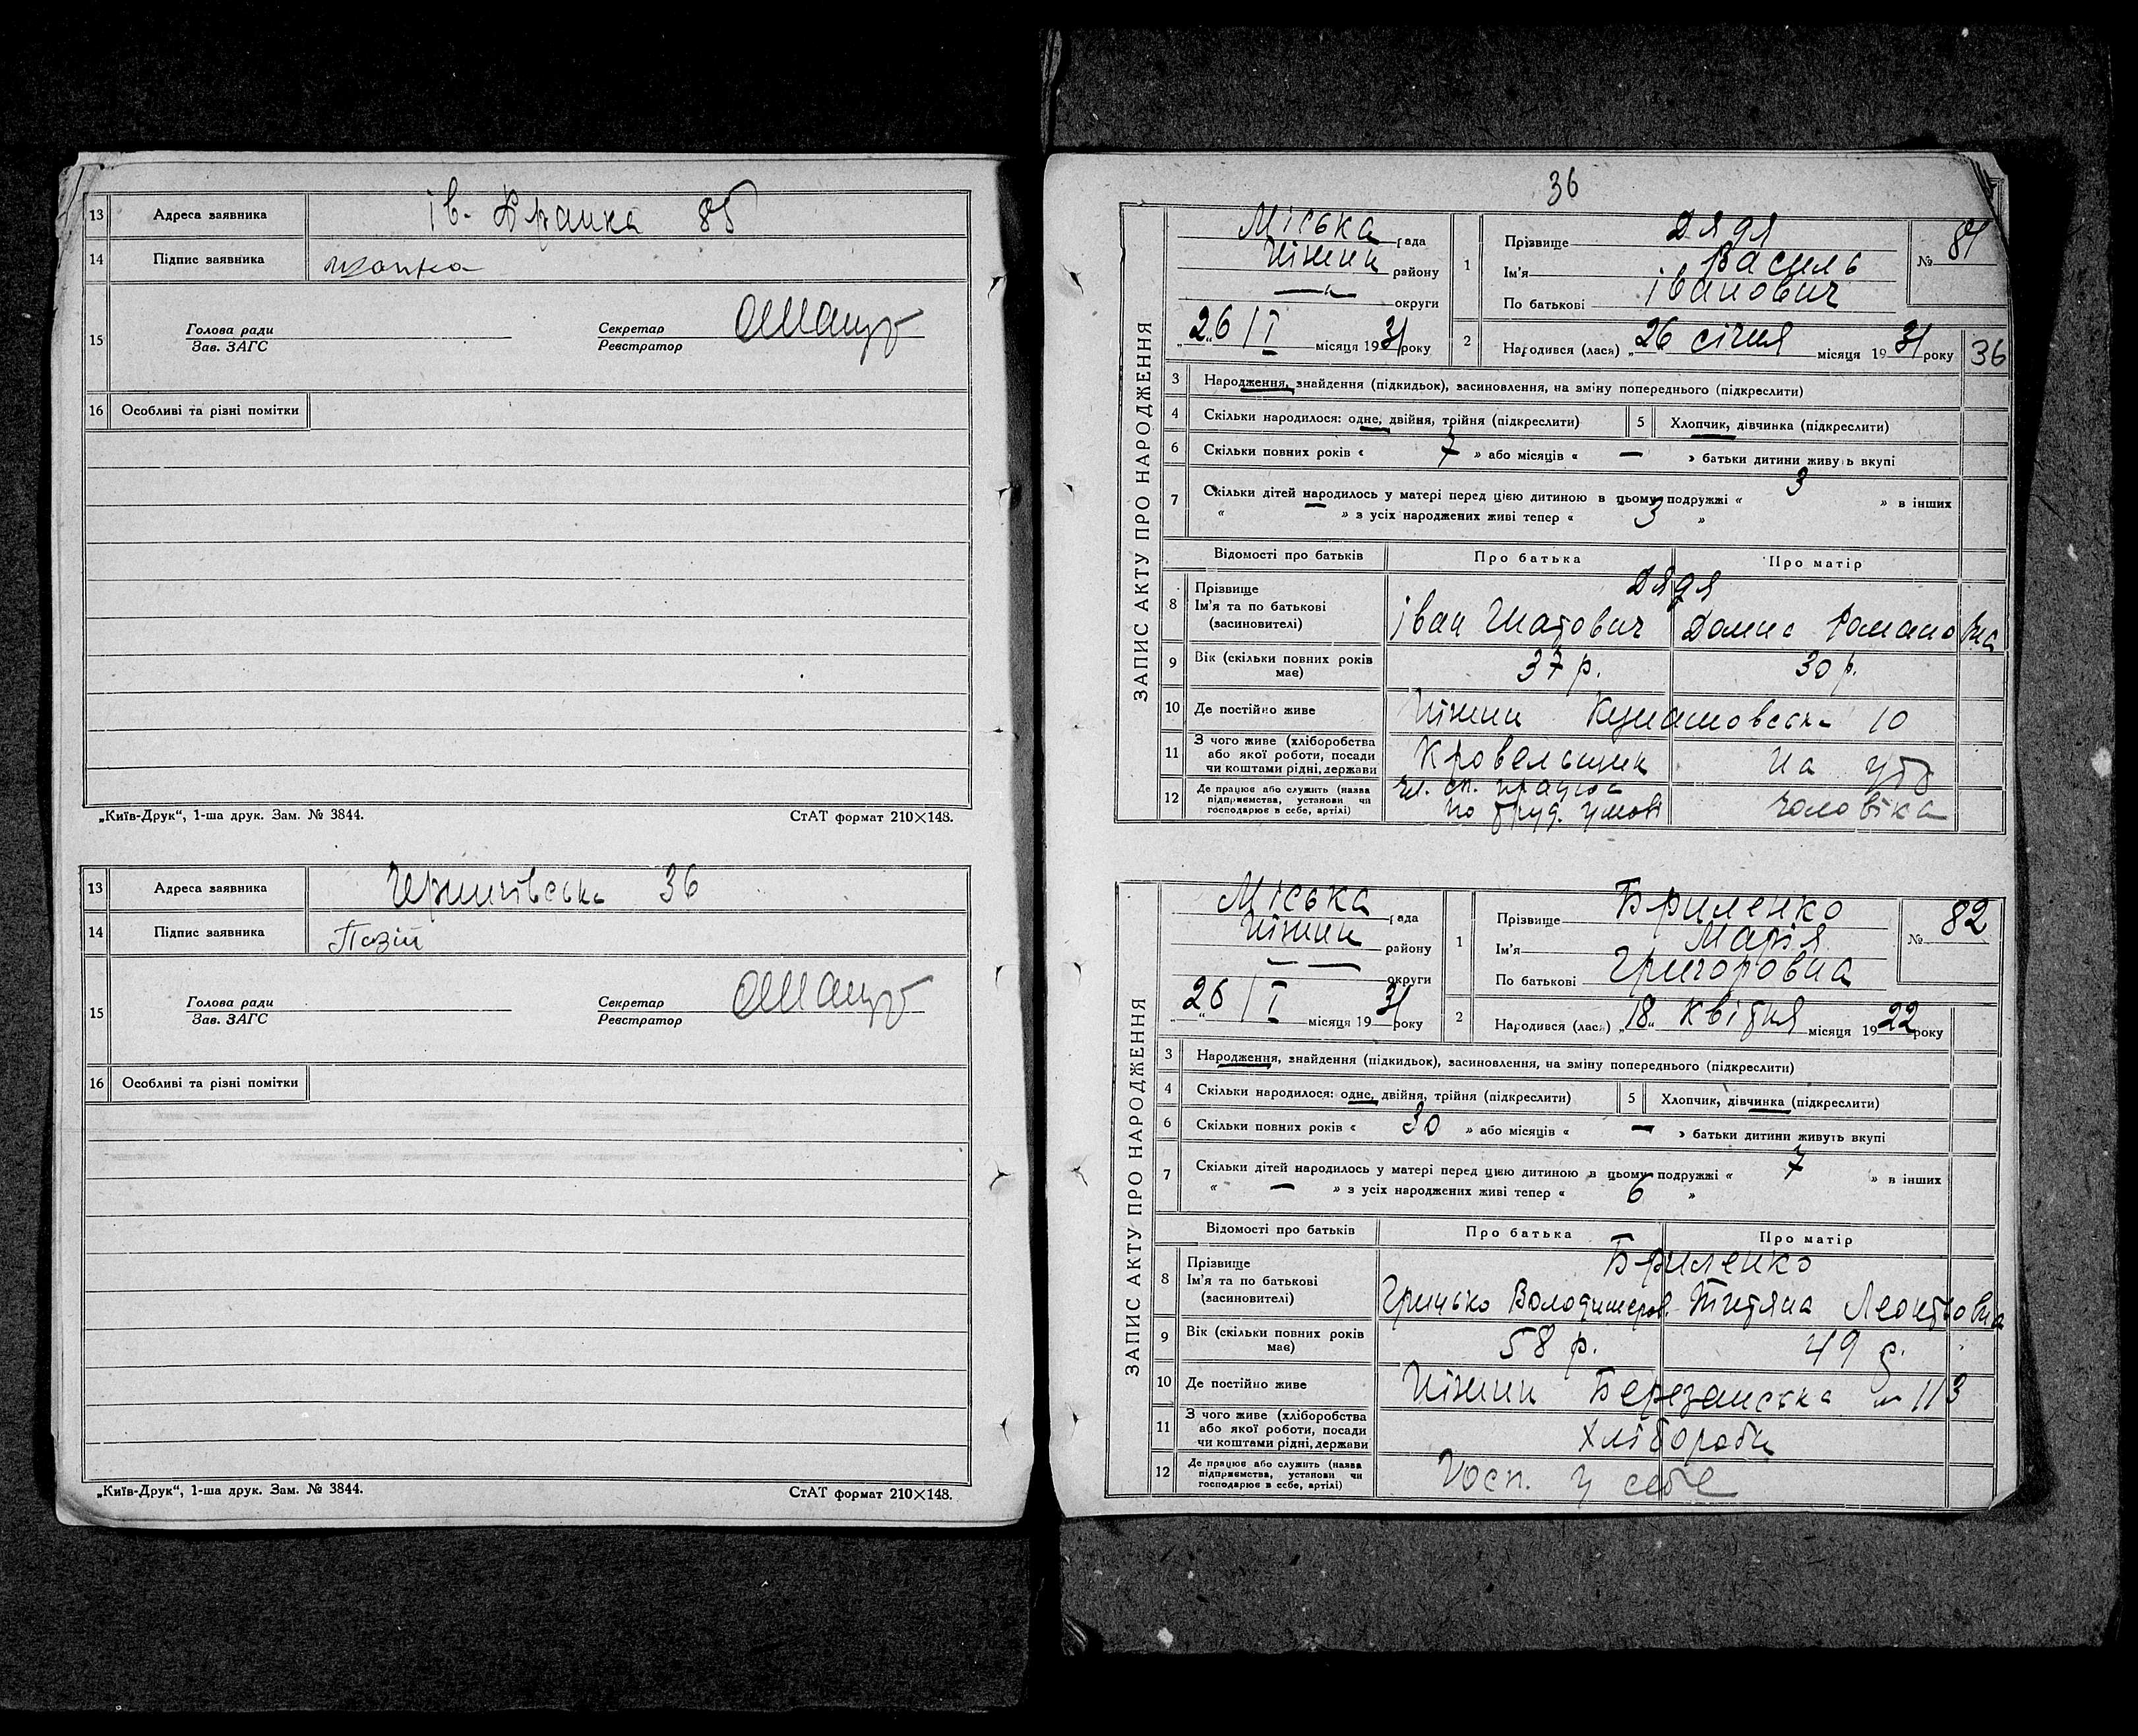 13 Адреса заявника ів. Франка 85
14 Підпис заявника
15 Голова ради Зав. ЗАГС Секретар Реєстратор
16 Особливі та різні помітки
„Київ-Друк“, 1-ша друк. Зам. № 3844. СтАТ формат 210×148.
13 Адреса заявника Чернигівська 36
14 Підпис заявника
15 Голова ради Зав. ЗАГС Секретар Реєстратор
16 Особливі та різні помітки
„Київ-Друк“, 1-ша друк. Зам. № 3844. СтАТ формат 210×148.
36
ЗАПИС АКТУ ПРО НАРОДЖЕННЯ
Міська рада
Ніжин району
округи
„26“ I місяця 1931 року
1 Прізвище Дядя
Ім'я Василь
По батькові Іванович
№ 81
2 Народився (лася) „26 січня місяця 1931 року
36
3 Народження, знайдення (підкидьок), засиновлення, на зміну попереднього (підкреслити)
4 Скільки народилося: одне, двійня, трійня (підкреслити) 5 Хлопчик, дівчинка (підкреслити)
6 Скільки повних років « 7 » або місяців « — » батьки дитини живуть вкупі
7 Скільки дітей народилось у матері перед цією дитиною в цьому подружжі « 3 » в інших
« — » з усіх народжених живі тепер « 3 »
Відомості про батьків Про батька Про матір
8 Прізвище Ім'я та по батькові (засновителі) Дядя
Іван Домна Романовна
9 Вік (скільки повних років має) 37 р. 30 р.
10 Де постійно живе Ніжин 10
11 З чого живе (хліборобства або якої роботи, посади чи коштами рідні, держави Кровельщик На утр
12 Де працює або служить (назва підприємства, установи чи господарює в себе, артілі) чл. сп. по труд. умові чоловіка
ЗАПИС АКТУ ПРО НАРОДЖЕННЯ
Міська рада
Ніжин району
— — округи
„26“ I місяця 1931 року
1 Прізвище Бриленко
Ім'я Марія
По батькові Григоровна
№ 82
2 Народився (лася) „18“ квітня місяця 1922 року
3 Народження, знайдення (підкидьок), засиновлення, на зміну попереднього (підкреслити)
4 Скільки народилося: одне, двійня, трійня (підкреслити) 5 Хлопчик, дівчинка (підкреслити)
6 Скільки повних років « 30 » або місяців « — » батьки дитини живуть вкупі
7 Скільки дітей народилось у матері перед цією дитиною в цьому подружжі « 7 » в інших
« — » з усіх народжених живі тепер « 6 »
Відомості про батьків Про батька Про матір
8 Прізвище Ім'я та по батькові (засиновителі) Бриленко
Грицько Володимеров. Титяна Леонтьовна
9 Вік (скільки повних років має) 58 р. 49 р.
10 Де постійно живе Ніжин Березанська 113
11 З чого живе (хліборобства або якої роботи, посади чи коштами рідні, держави Хлібороби
12 Де працює або служить (назва підприємства, установи чи господарює в себе, артілі) Госп. у себе